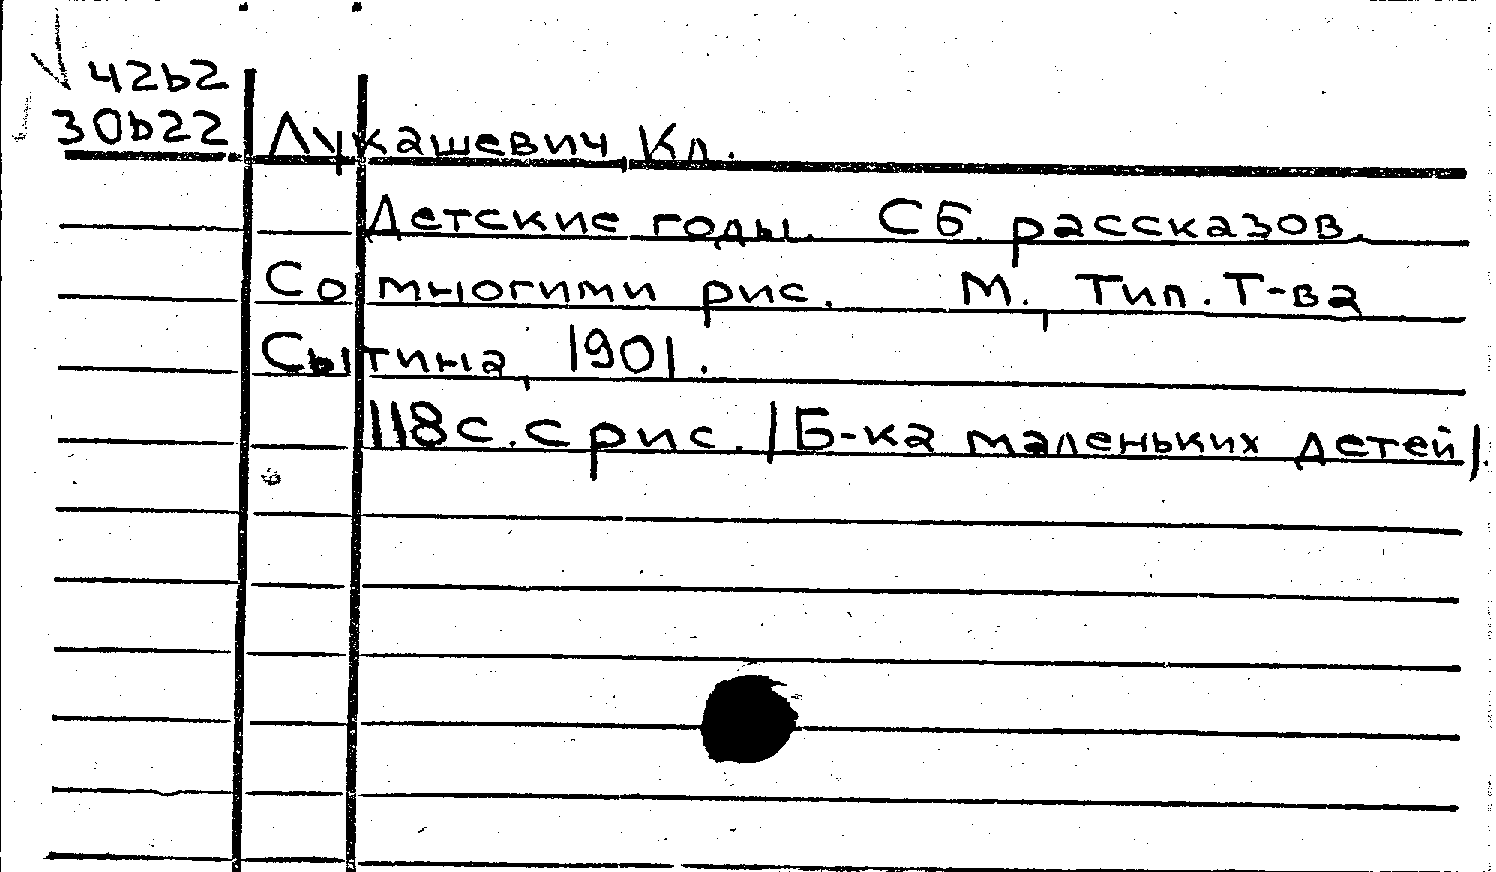 42b2
30b22 Лукашевич, Кл.
Детские годы. Сб. рассказов.
Со многими рис. М., Тип. Т-ва
Сытина, 1901.
118 с. с рис. /Б-ка маленьких детей/.